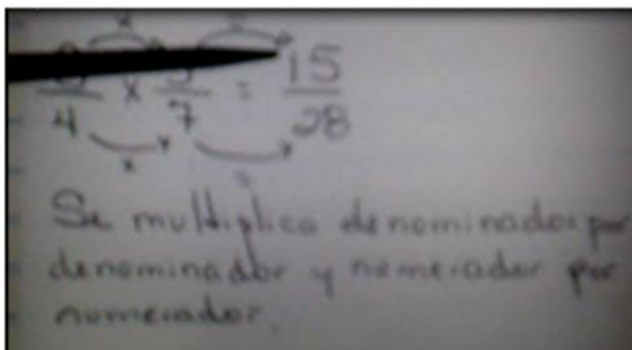 x =
4 x 7 = 15/28
x =
Se multiplica denominador por
denominador y numerador por
numerador.